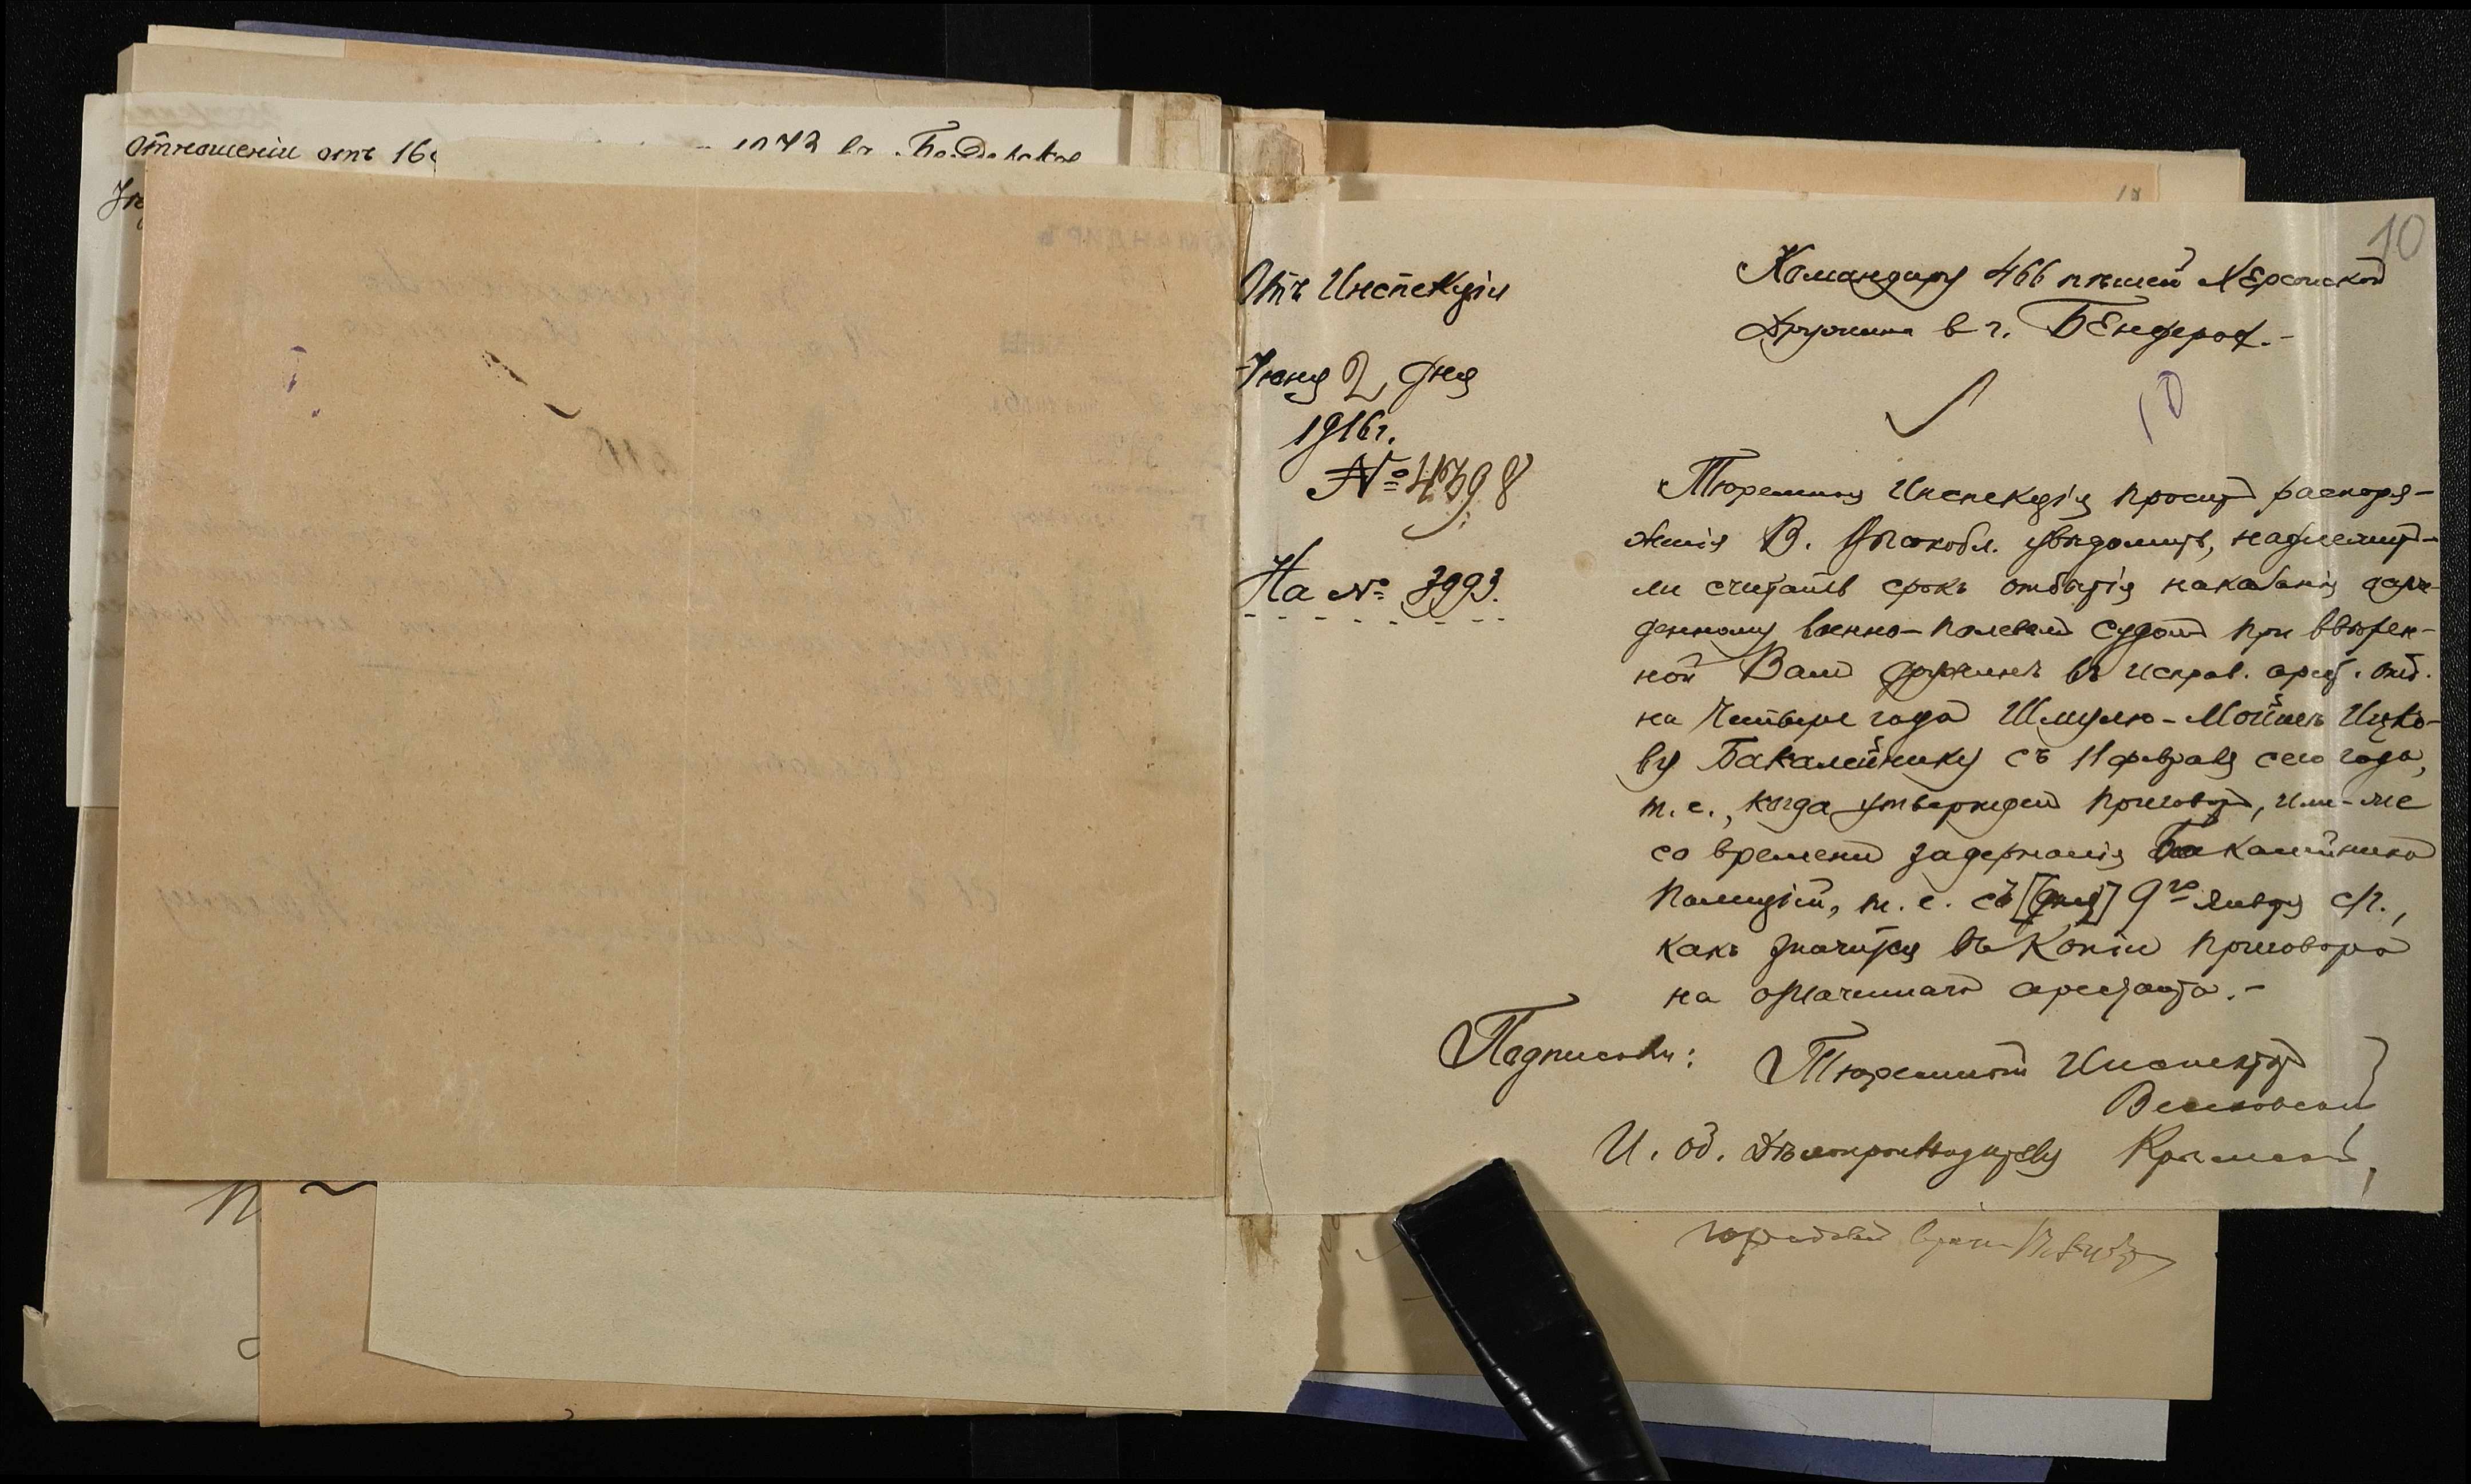 отношеніи отъ 16
10
Отъ Инспекціи
Іюня 2 дня
1916 г.
№ 4398
На № 3993.
Командиру 466 пѣшей Херсонской
Дружины в г. Бендерах.-
10
Тюремная Инспекція просит распоря-
женія В. Высокобл. увѣдомить, надлежит-
ли считать срокъ отбытія наказанія осуж-
денному военно-полевым судом при ввѣрен-
ной Вам дружинѣ въ исправ. арест. отд.
на четыре года Шмулю-Мойшѣ Ицко-
ву Бакалейнику съ 11 февраля сего года,
т. е., когда утвержден приговор, или-же
со времени задержанія Бакалейника
полиціей, т. е. съ [дня] 9го января с/г.,
какъ значится въ копіи приговора
на означеннаго арестанта.-
Подписали: Тюремный Инспектор
И. об. Дѣлопроизводителя
городовой врач